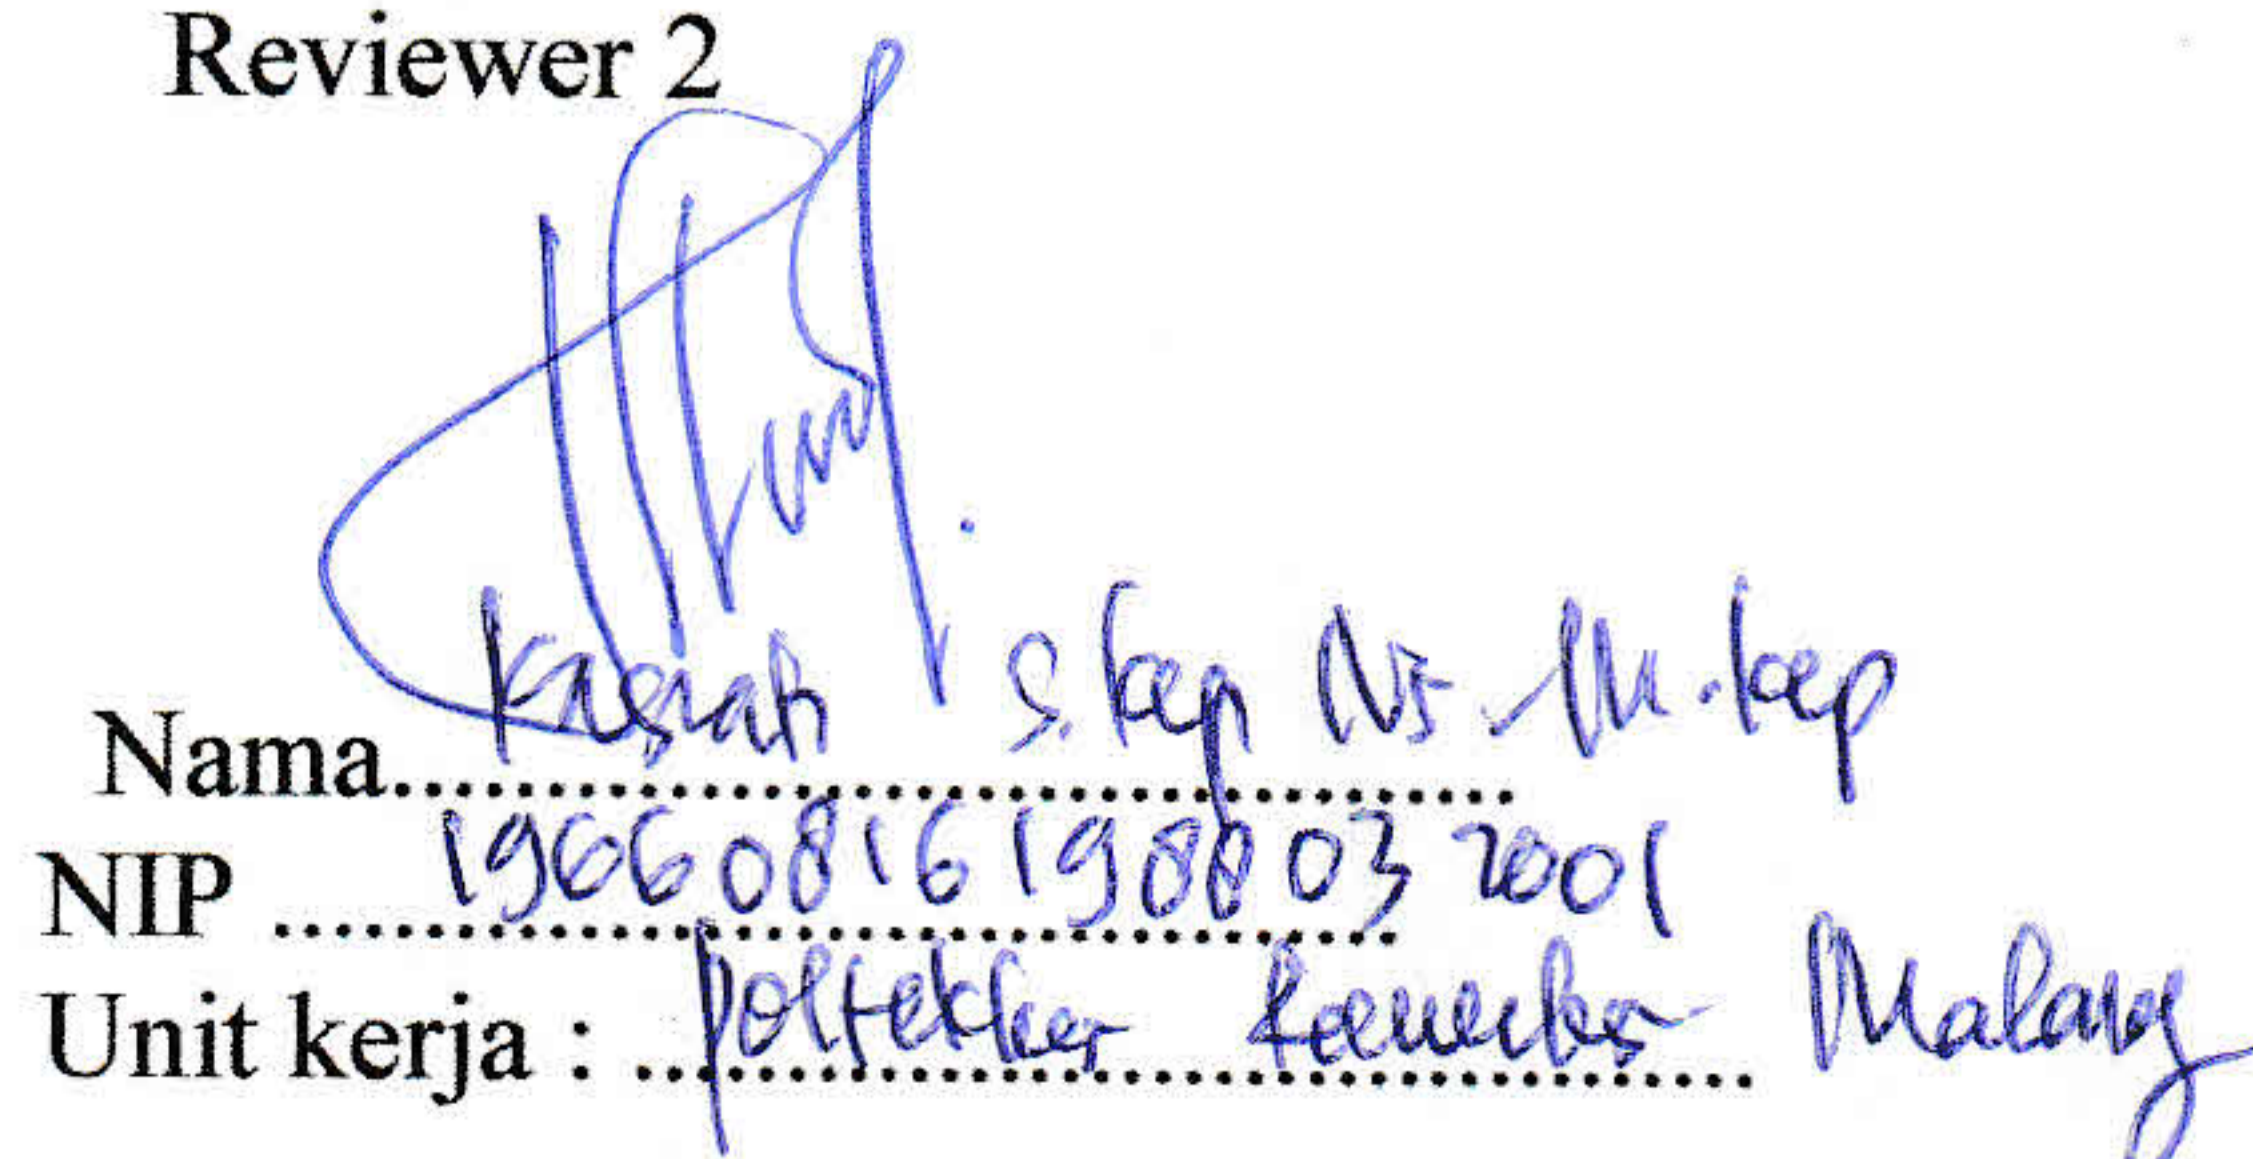 Reviewer 2
Nama.......... Kasiati S.kep Ns. M.kep
NIP .......... 196608161988032001
Unit kerja : .......... Poltekkes Kemenkes Malang